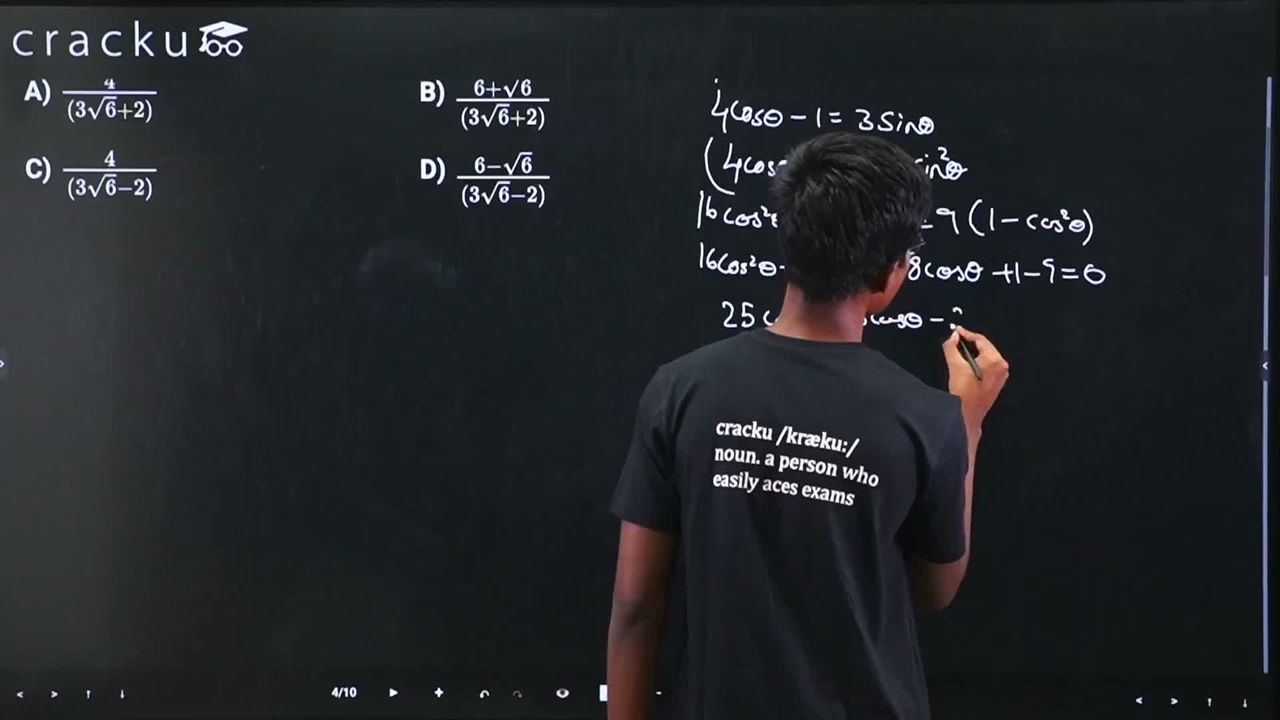 cracku
A) 4/(3√6+2)
B) 6+√6/(3√6+2)
C) 4/(3√6−2)
D) 6−√6/(3√6−2)
4cosθ − 1 = 3sinθ
(4cos in²θ
16cos²θ = 9(1 − cos²θ)
16cos²θ − 8cosθ + 1 − 9 = 0
25 cosθ −
cracku /kræku:/
noun. a person who
easily aces exams
4/10